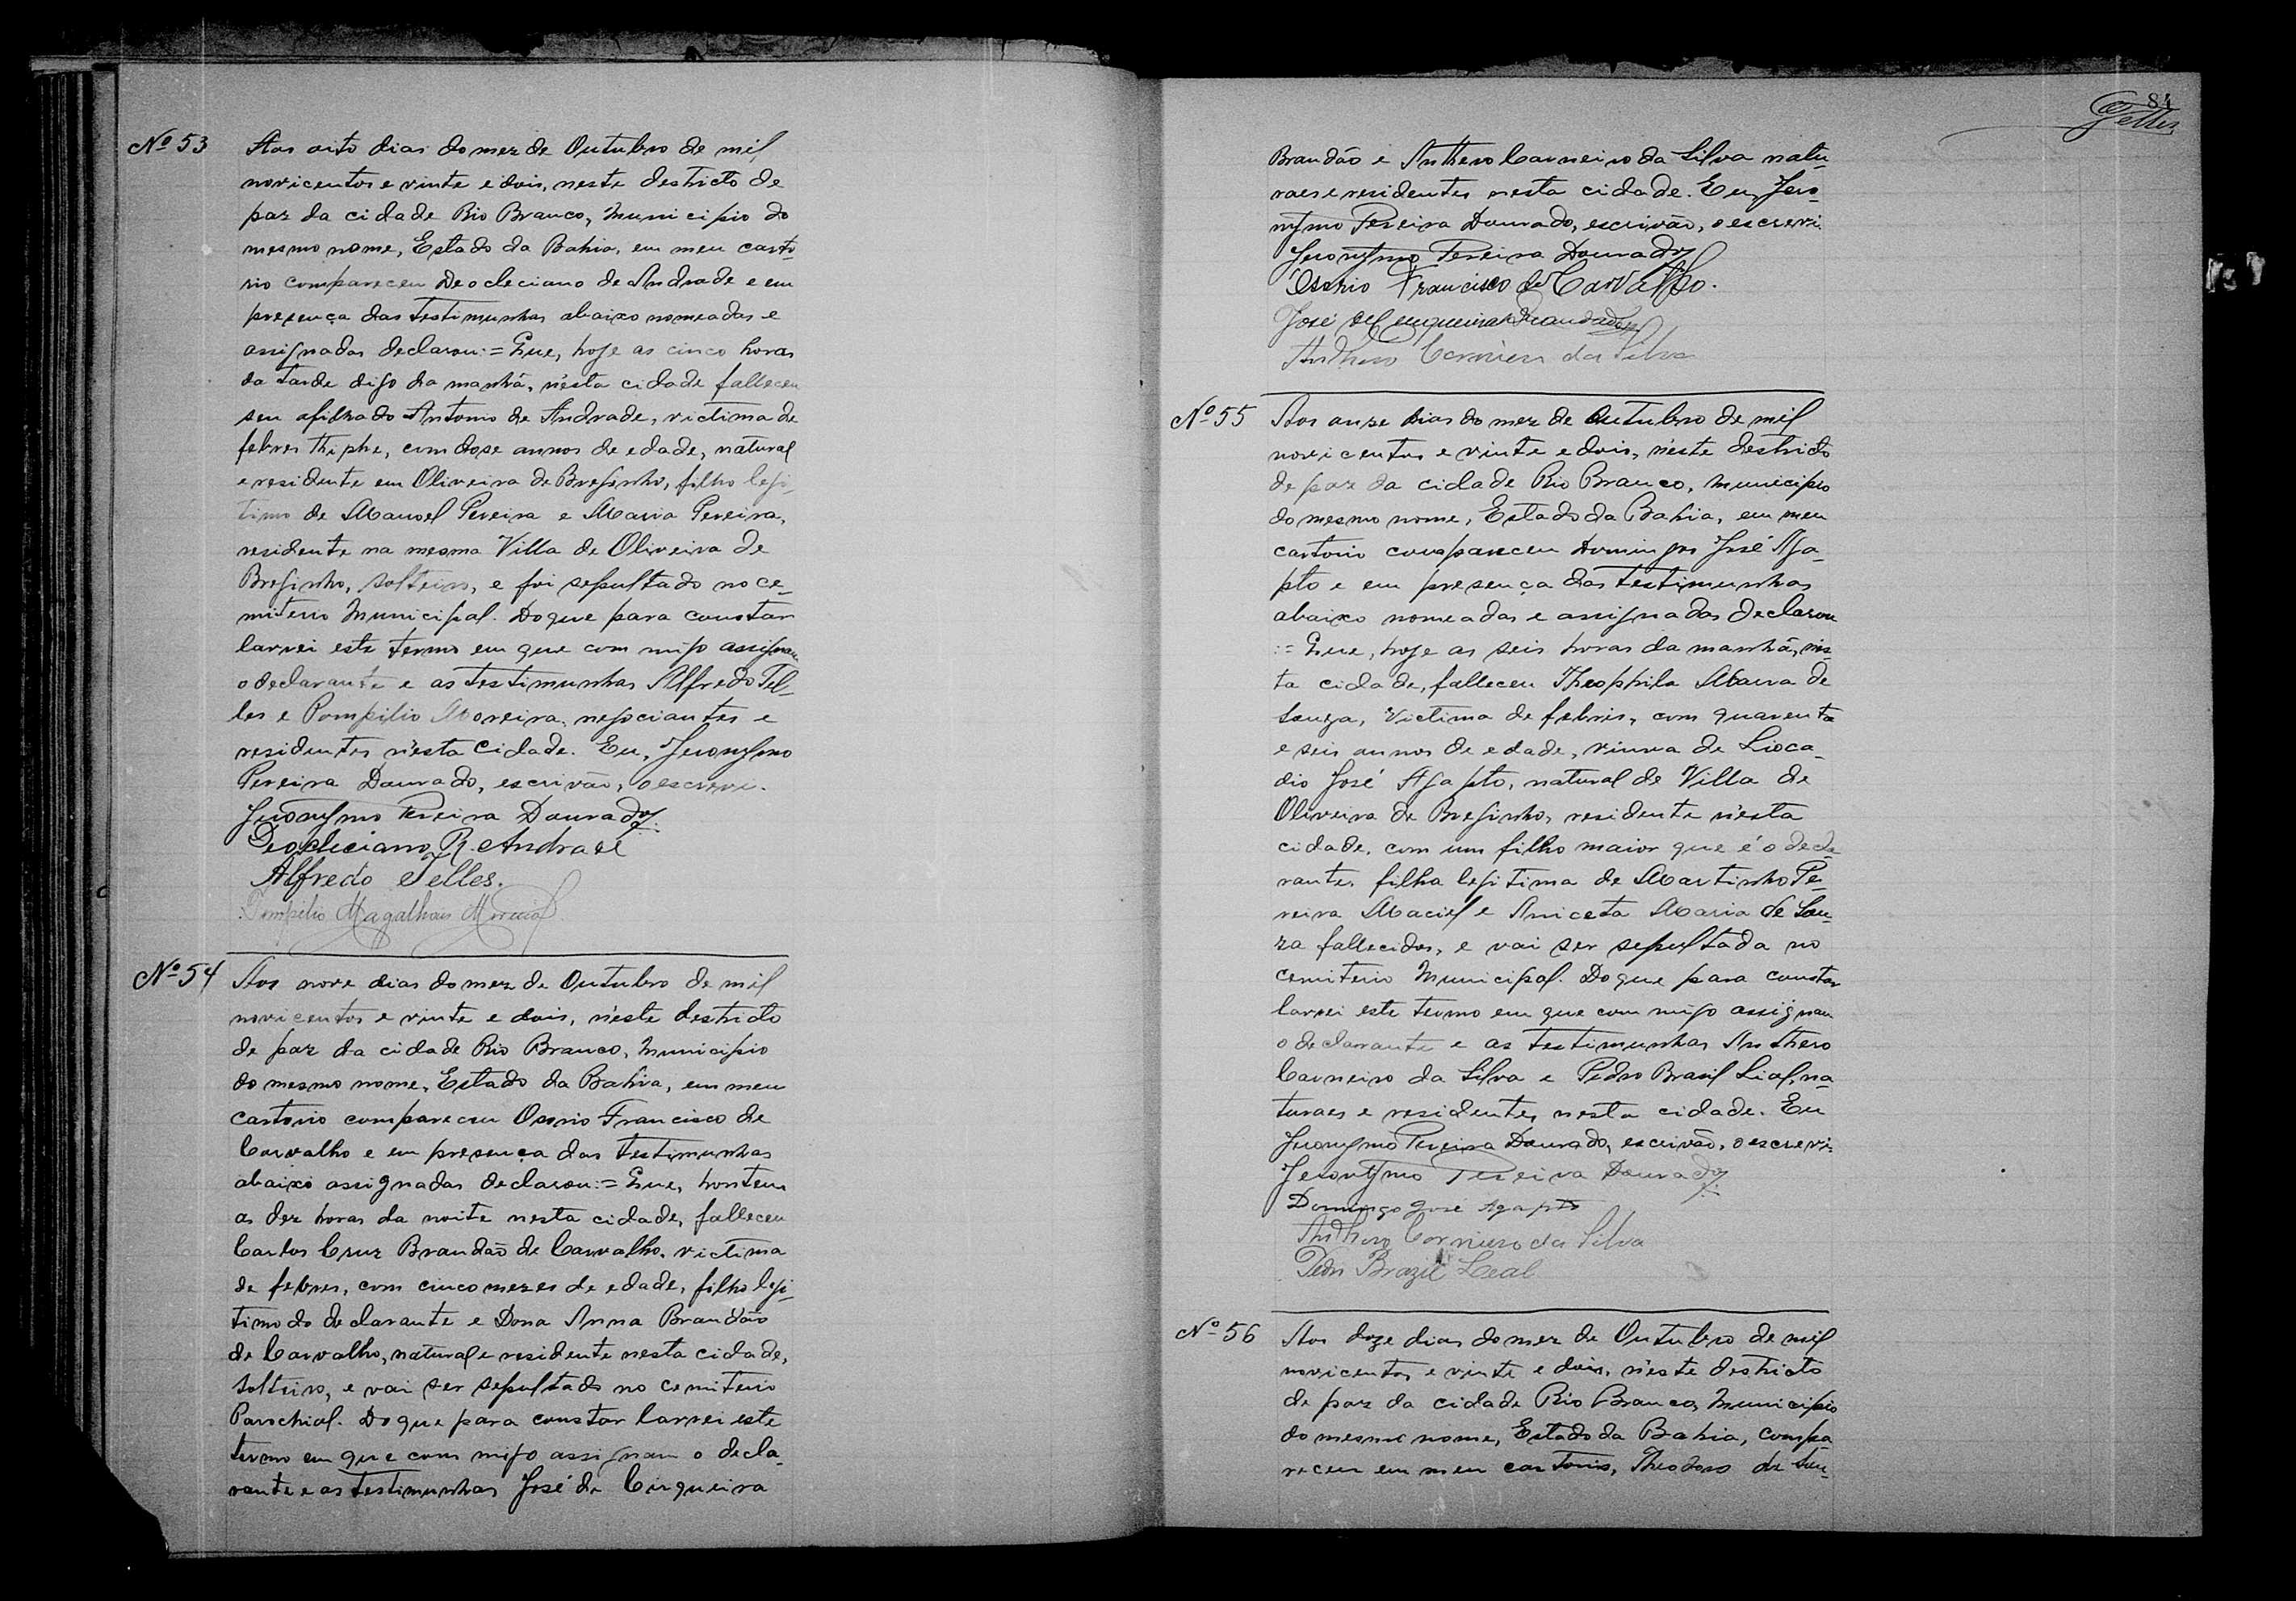 Nº 53
Aos oito dias do mez de Outubro de mil
novicentos e vinte e dois, neste destricto de
paz da cidade Rio Branco, Municipio do
mesmo nome, Estado da Bahia, em meu carto-
rio compareceu Deocleciano de Andrade e em
presença das testimunhas abaixo nomeadas e
assignadas declarou:= Que, hoje as cinco horas
da tarde digo da manhã, n'esta cidade falleceu
seu afilhado Antonio de Andrade, victima de
febres thiphe, com dose annos de edade, natural
e residente em Oliveira de Bresinho, filho legi-
timo de Manoel Pereira e Maria Pereira,
residente na mesma Villa de Oliveira de
Bresinho, solteiro, e foi sepultado no ce-
miterio Municipal. Do que para constar
larvei este termo em que com migo assignam
o declarante e as testimunhas Alfredo Tel-
les e Pompilio Moreira, negociantes e
residentes n'esta Cidade. Eu, Jeronymo
Pereira Dourado, escrivão, o escrevi.
Jeronymo Pereira Dourado
Deocleciano R. Andrade
Alfredo Telles.
Pompilio Magalhães Moreira
Nº 54
Aos nove dias do mez de Outubro de mil
novicentos e vinte e dois, n'este destricto
de paz da cidade Rio Branco, Municipio
do mesmo nome, Estado da Bahia, em meu
cartorio compareceu Osorio Francisco de
Carvalho e em presença das testimunhas
abaixo assignadas declarou:= Que, hontem
as dez horas da noite nesta cidade, falleceu
Carlos Cruz Brandão de Carvalho, victima
de febres, com cinco mezes de edade, filho legi-
timo do declarante e Dona Anna Brandão
de Carvalho, natural e residente nesta cidade,
solteiro, e vai ser sepultado no cemiterio
Parochial. Do que para constar larvei este
termo em que com migo assignam o decla-
rante e as testimunhas José de Cirqueira
84
Telles
Brandão e Anthero Carneiro da Silva natu-
raes e residentes nesta cidade. Eu, Jero-
nymo Pereira Dourado, escrivão, o escrevi.
Jeronymo Pereira Dourado
Osorio Francisco de Carvalho.
José de Cerqueira Brandão
Anthero Carneiro da Silva
Nº 55
Aos onze dias do mez de Outubro de mil
novicentos e vinte e dois, n'este destricto
de paz da cidade Rio Branco, Municipio
do mesmo nome, Estado da Bahia, em meu
cartorio compareceu Domingos José Aga-
pto e em presença das testimunhas
abaixo nomeadas e assignadas declarou
:= Que, hoje as seis horas da manhã, nes-
ta cidade, falleceu Theophila Maria de
Souza, victima de febris, com quarenta
e seis annos de edade, viuva de Lioca-
dio José Agapto, natural de Villa de
Oliveira de Bresinho, residente n'esta
cidade, com um filho maior que é o decla-
rante, filha legitima de Martinho Pe-
reira Maciel e Aniceta Maria de Sou-
za fallecidos, e vai ser sepultada no
cemiterio Municipal. Do que para constar
larvei este termo em que com migo assignam
o declarante e as testimunhas Anthero
Carneiro da Silva e Pedro Brasil Lial, na-
turaes e residentes nesta cidade. Eu
Jeronymo Pereira Dourado, escrivão, o escrevi.
Jeronymo Pereira Dourado
Domingo José Agapto
Anthero Carneiro da Silva
Pedro Brazil Leal
Nº 56
Aos doze dias do mez de Outubro de mil
novicentos e vinte e dois, n'este destricto
de paz da cidade Rio Branco, Municipio
do mesmo nome, Estado da Bahia, compa-
receu em meu cartorio, Theodoro de Sou-